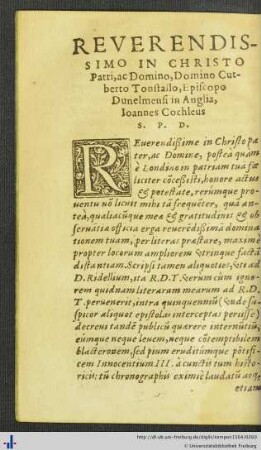 REVERENDIS-
SIMO IN CHRISTO
Patri, ac Domino, Domino Cut-
berto Tonstallo, Episcopo
Dunelmensi in Anglia,
Ioannes Cochleus
S. P. D.
REuerendißime in Christo pa
ter, ac Domine, postea quam
è Londino in patriam tua fœ
liciter cõceßisti, honore actus
& potestate, rerumque pro-
uentu nõ licuit mihi tã frequẽter, quã an-
tea, qualiacũque meæ & gratitudinis & ob
seruãtiæ officia erga reuerẽdißimã domina
tionem tuam, per literas præstare, maximè
propter locorum ampliorem vtrinque factã
distantiam. Scripsi tamen aliquoties, &
D. Ridellium, R.D.T.
rem quidnam literarum mearum ad R.D.
T. peruenerit, intra quinquennium (
spicor aliquot epistolas interceptas perisse)
decreui tandẽ publicũ quærere internũtiũ,
eumque neque leuem, neque cõtemptibilem
blateronem, sed pium eruditúmque põtifi-
cem Innocentium III. à cunctis tum histo-
ricis, tũ chronographis eximiè laudatũ
etiam
http://dl.ub.uni-freiburg.de/diglit/
Universitätsbibliothek Freiburg